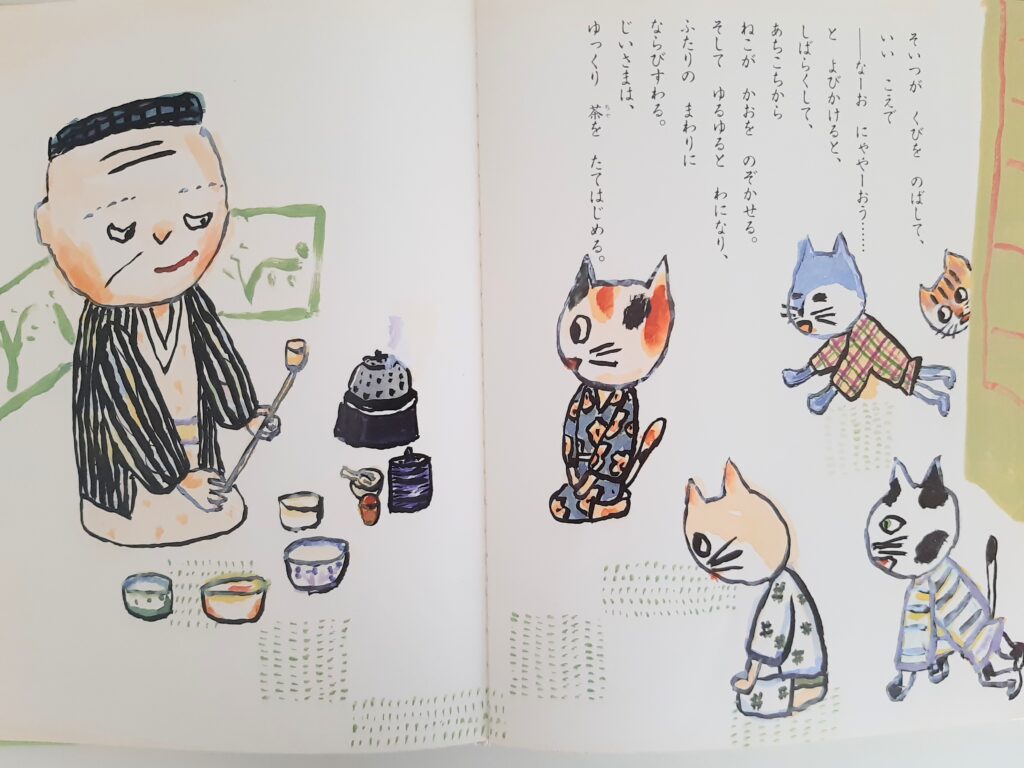 そいつが　くびを　のばして、
いい　こえで
――なーお　にゃやーおう……
と　よびかけると、
しばらくして、
あちこちから
ねこが　かおを　のぞかせる。
そして　ゆるゆると　わになり、
ふたりの　まわりに
ならびすわる。
じいさまは、
ゆっくり　茶を　たてはじめる。